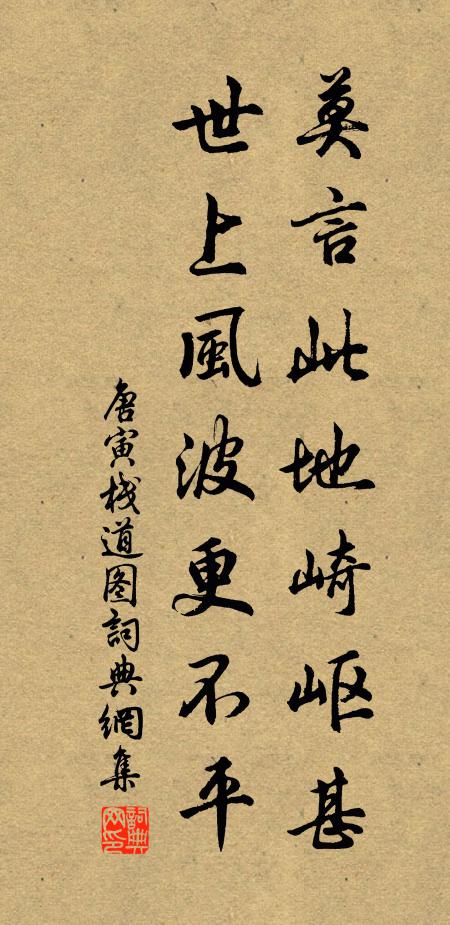 莫言此地崎岖甚
世上風波更不平
唐寅栈道图詞典網集
詞典網印